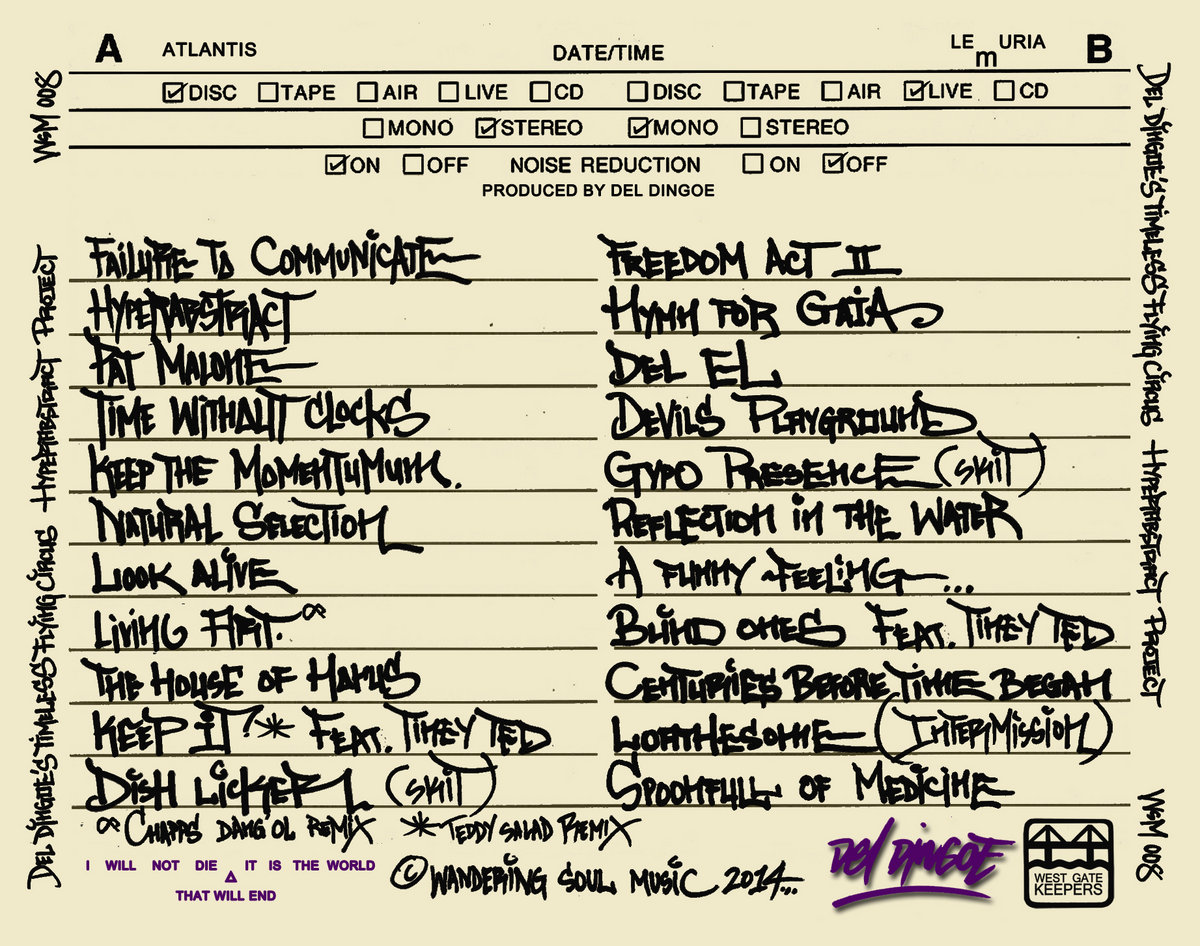 A ATLANTIS DATE/TIME LEmURIA B
DISC TAPE AIR LIVE CD DISC TAPE AIR LIVE CD
MONO STEREO MONO STEREO
ON OFF NOISE REDUCTION ON OFF
PRODUCED BY DEL DINGOE
FAILURE TO COMMUNICATE
HYPERABSTRACT
PAT MALONE
TIME WITHOUT CLOCKS
KEEP THE MOMENTUMUM.
NATURAL SELECTION
LOOK ALIVE
LIVING APIT.∞
THE HOUSE OF HANUS
KEEP IT!* FEAT. TINEY TED
DISH LICKER (SKIT)
FREEDOM ACT II
HYMN FOR GAIA
DEL EL
DEVILS PLAYGROUND
GYPO PRESENCE (SKIT)
REFLECTION IN THE WATER
A FUNNY FEELING...
BLIND ONES FEAT. TINEY TED
CENTURIES BEFORE TIME BEGAN
LOATHESOME (INTERMISSION)
SPOONFULL OF MEDICINE
∞ CHAPPS DANG'OL REMIX * TEDDY SALAD REMIX
I WILL NOT DIE △ IT IS THE WORLD
THAT WILL END
© WANDERING SOUL MUSIC 2014...
DEL DINGOE
WEST GATE
KEEPERS
DEL DINGOE'S TIMELESS FLYING CIRCUS HYPERABSTRACT PROJECT WSM 008
DEL DINGOE'S TIMELESS FLYING CIRCUS HYPERABSTRACT PROJECT WSM 008